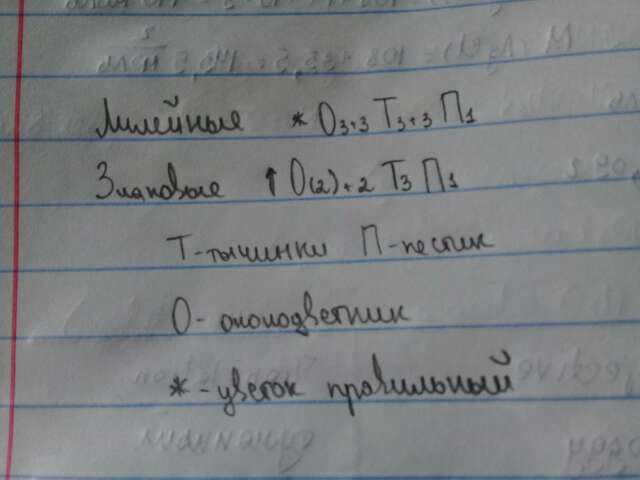 Лилейные * О3+3 Т3+3 П1
Злаковые ↑ О(2)+2 Т3 П1
Т-тычинки П-пестик
О-околоцветник
*-цветок правильный